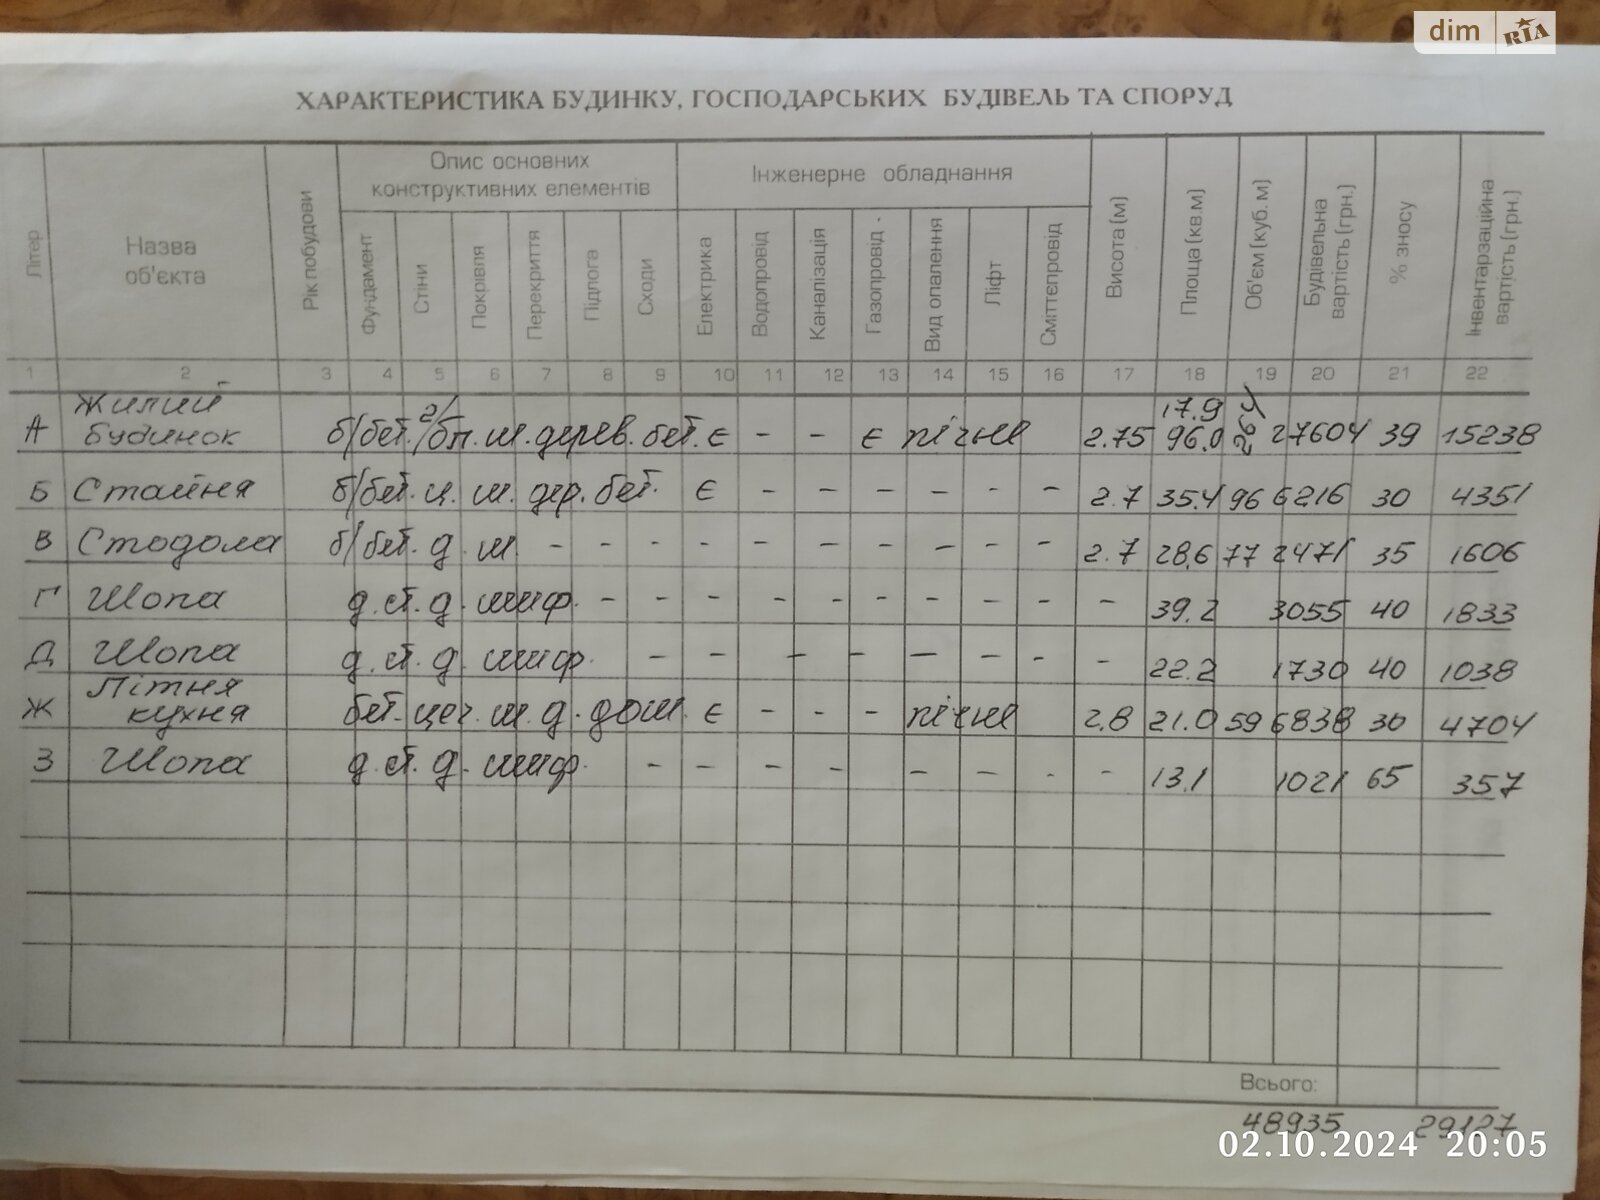 dim RIA
ХАРАКТЕРИСТИКА БУДИНКУ, ГОСПОДАРСЬКИХ БУДІВЕЛЬ ТА СПОРУД
Літер
Назва об'єкта
Рік побудови
Опис основних конструктивних елементів
Фундамент
Стіни
Покрівля
Перекриття
Підлога
Сходи
Інженерне обладнання
Електрика
Водопровід
Каналізація
Газопровід
Вид опалення
Ліфт
Сміттєпровід
Висота (м)
Площа (кв.м)
Об'єм (куб.м)
Будівельна вартість (грн.)
% зносу
Інвентарзаційна вартість (грн.)
1 2 3 4 5 6 7 8 9 10 11 12 13 14 15 16 17 18 19 20 21 22
А Жилий будинок б/бет. г/бл. ш. дерев. бет. є - - є пічне 2.75 17.9 96.0 264 27604 39 15238
Б Стайня б/бет. ц. ш. дер. бет. є - - - - - - 2.7 35.4 96 6216 30 4351
В Стодола б/бет. д. ш - - - - - - - - - - 2.7 28,6 77 2471 35 1606
Г Шопа д.ст. д. шиф. - - - - - - - - - - 39.2 3055 40 1833
Д Шопа д.ст. д. шиф. - - - - - - - - - 22.2 1730 40 1038
Ж Літня кухня бет. цег. ш. д. дощ. є - - - пічне 2.8 21.0 59 6838 30 4704
З Шопа д.ст. д. шиф. - - - - - - - - - 13.1 1021 65 357
Всього:
48935 29127
02.10.2024 20:05